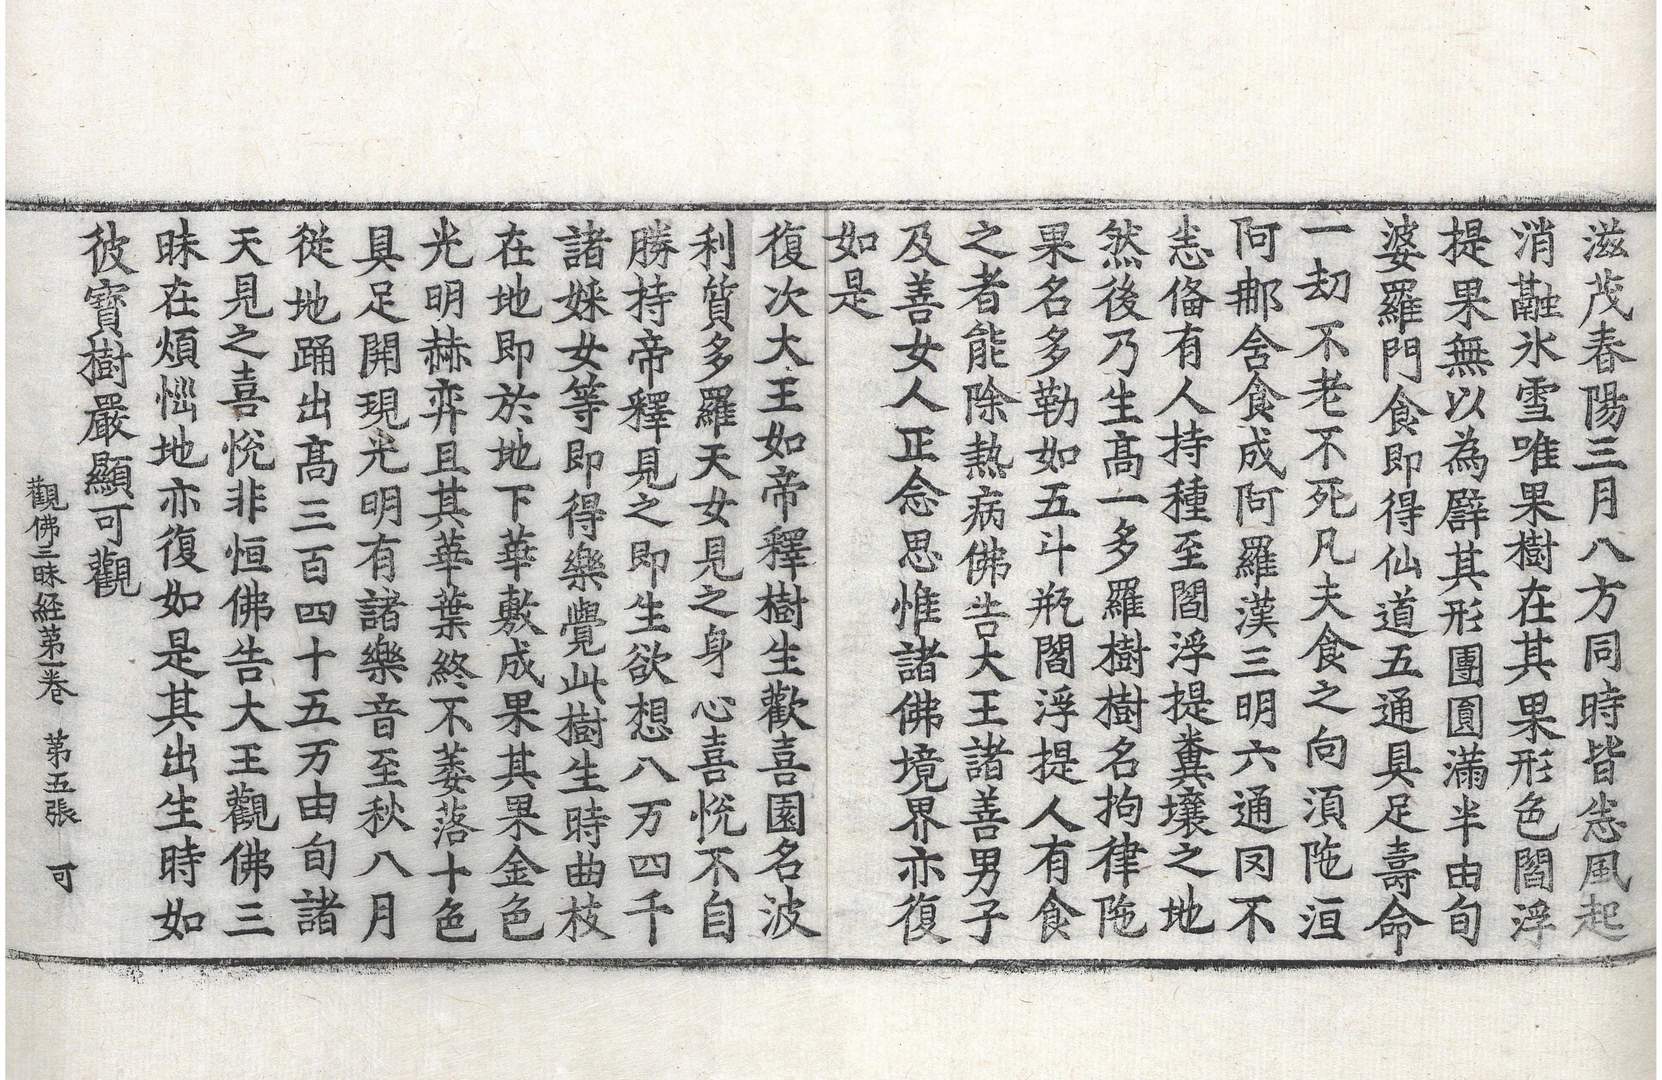 滋茂春陽三月八方同時皆悉風起
消融氷雪唯果樹在其果形色閻浮
提果無以為辟其形團圓滿半由旬
婆羅門食即得仙道五通具足壽命
一劫不老不死凡夫食之向湏陁洹
阿那含食成阿羅漢三明六通罔不
悉俻有人持種至閻浮提糞壤之地
然後乃生髙一多羅樹樹名拘律陁
果名多勒如五斗瓶閻浮提人有食
之者能除熱病佛告大王諸善男子
及善女人正念思惟諸佛境界亦復
如是
復次大王如帝釋樹生歡喜園名波
利質多羅天女見之身心喜悅不自
勝持帝釋見之即生欲想八万四千
諸婇女等即得樂覺此樹生時曲枝
在地即於地下華敷成果其果金色
光明赫弈且其華葉終不萎落十色
具足開現光明有諸樂音至秋八月
從地踊出髙三百四十五万由旬諸
天見之喜悅非恒佛告大王觀佛三
昧在煩惱地亦復如是其出生時如
彼寶樹嚴顯可觀
觀佛三昧経第一卷 第五張 可